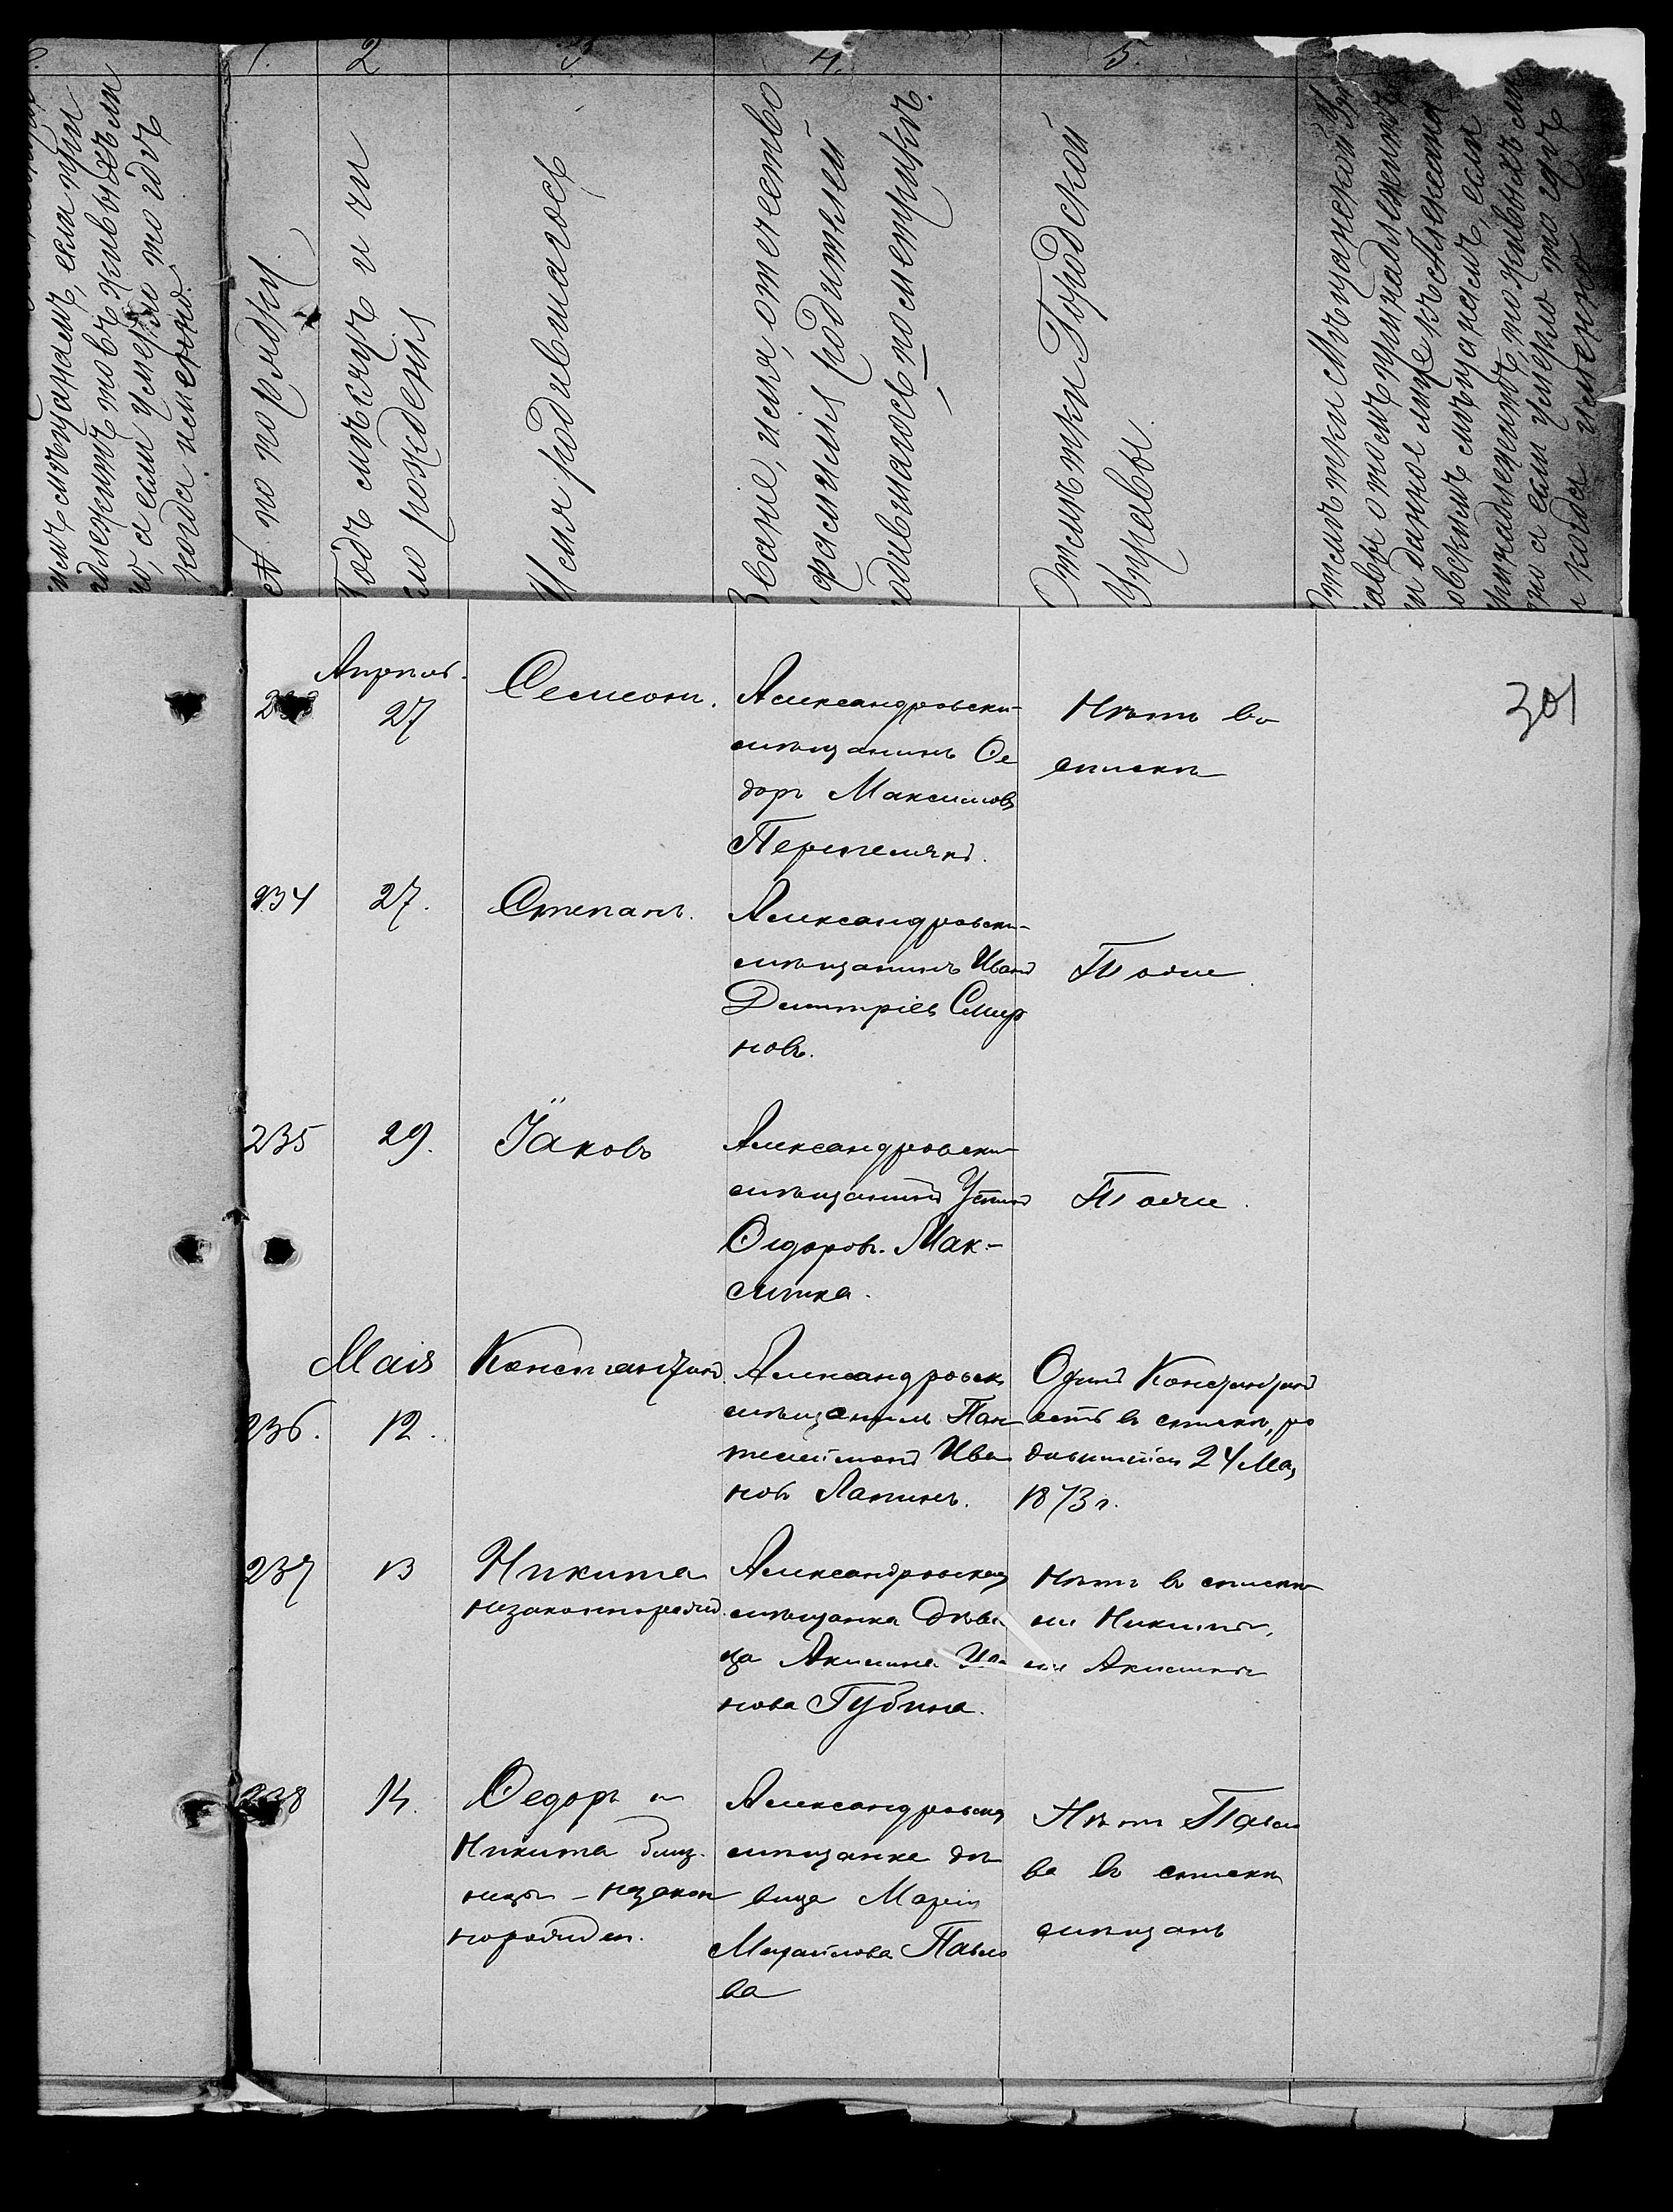 1. 2 3 4. 5.
имъ мѣщанамъ, если при
надлежитъ то въ живыхъ ли
а если умеръ то гдѣ
когда именно.
№ по порядку.
Годъ мѣсяцъ и чи
сло рожденія
Имя родившагося
Званіе, имя, отечество
фамилія родителей
родившагося по метрикѣ.
Отмѣтки Городской
Управы.
Отмѣтки Мѣщанской Уп
равы о томъ принадлежитъ
ли данное лице къ Александ
ровскимъ мѣщанамъ, если
принадлежитъ, то живыхъ ли
а если умерло то гдѣ
и когда именно
301
Апрель.
233
27
Семеонъ.
Александровски-
мѣщанинъ Ѳе
доръ Максимовъ
Перепелякъ.
Нѣтъ въ
спискѣ
234
27.
Степанъ.
Александровски-
мѣщанинъ Иванъ
Димитріевъ Смир
новъ.
Тоже
235
29.
Іаковъ
Александровски-
мѣщанинъ Устинъ
Ѳедоровъ. Мак-
симка.
Тоже.
Маія
236.
12.
Константинъ
Александровск
мѣщанинъ Пан
телеймонъ Ива
новъ Лапинъ.
Одинъ Константинъ
есть въ спискѣ, ро
дившійся 24 Мая
1873 г.
237
13
Никита
незаконнорожд.
Александровская
мѣщанка дѣви
ца Акилина Ива
нова Губина.
Нѣтъ въ спискѣ
ни Никиты,
ни Акилины
238
14.
Ѳедоръ и
Никита близ-
нецы - незакон
норожден.
Александровская
мѣщанка дѣ
вица Марія
Михайлова Павло
ва
Нѣтъ Павло
ва въ спискѣ
мѣщанъ